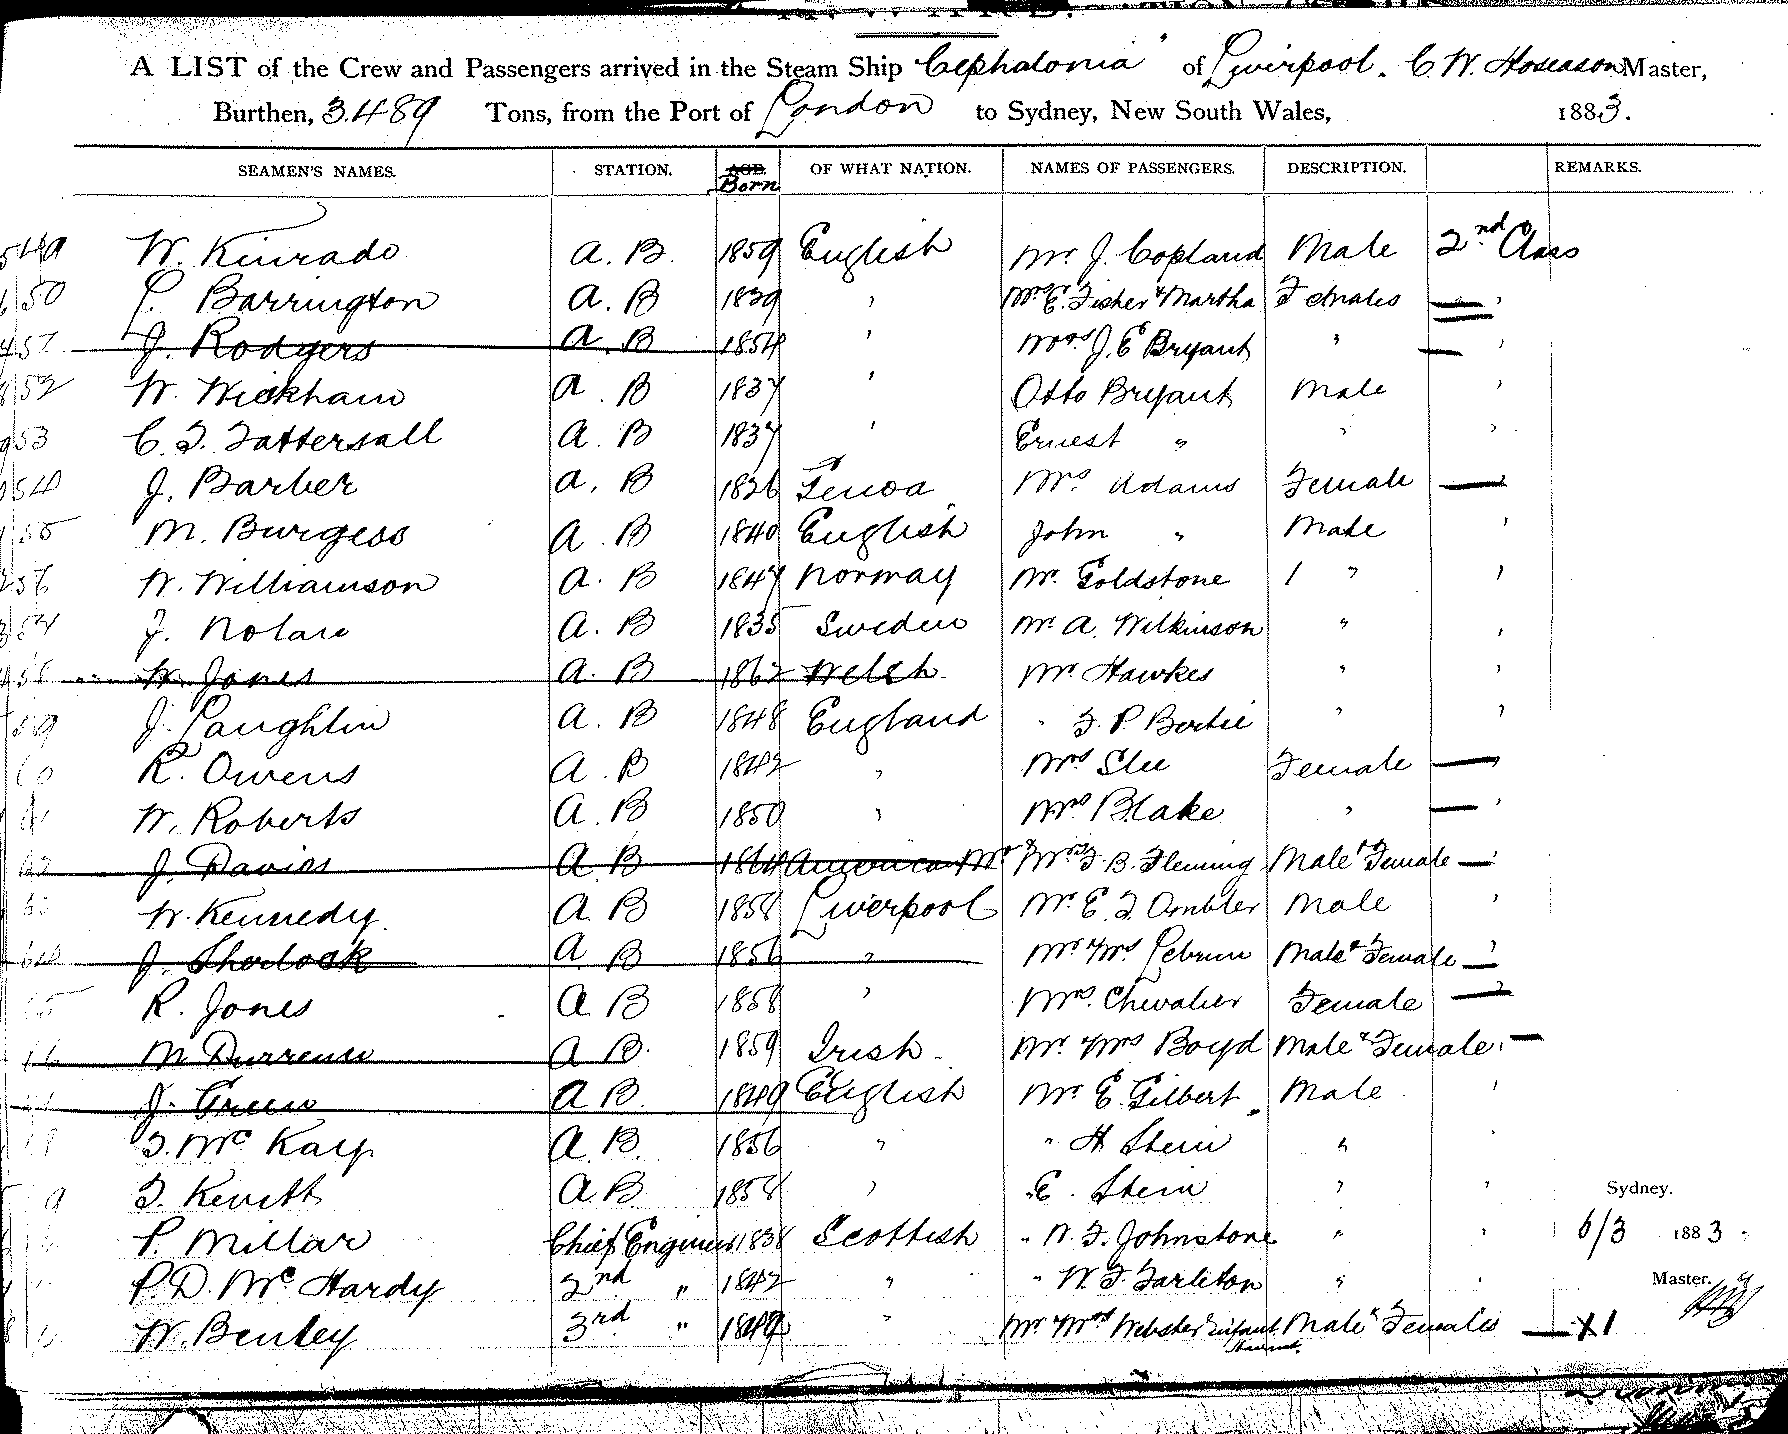 A LIST of the Crew and Passengers arrived in the Steam Ship "Cephalonia" of Liverpool. C. W. Hoseason Master,
Burthen, 3.489 Tons, from the Port of London to Sydney, New South Wales, 1883.
SEAMEN'S NAMES. STATION. AGE. Born OF WHAT NATION. NAMES OF PASSENGERS. DESCRIPTION. REMARKS.
49 W. Kinrade A. B. 1859 English Mr. J. Copland Male 2nd Class
50 Barrington A. B 1839 " Mrs E. Fisher & Martha Females "
51 J. Rodgers A. B 1854 " Mrs J. E Bryant " "
52 W. Wickham A. B 1837 " Otto Bryant Male "
53 C. T. Tattersall A. B 1837 " Ernest " " "
54 J. Barber A. B 1826 Genoa Mrs. Adams Female
55 M. Burgess A. B 1840 English John " Male "
56 W. Williamson A. B 1847 Norway Mr. Goldstone 1 " "
57 J. Nolan A. B 1835 Sweden Mr. A. Wilkinson " "
58 W. Jones A. B 1862 Welsh Mr Hawkes " "
59 J. Laughlin A. B 1848 England " T. P. Bertie " "
60 R. Owens A. B 1842 " Mrs Slee Female "
61 W. Roberts A. B 1850 " Mrs Blake " "
62 J. Davies A B 1864 American Mr & Mrs T. B. Fleming Male & Female "
63 W. Kennedy A. B 1858 Liverpool Mr. E. T. Ambler Male "
64 J. Sherlock A B 1856 " Mr & Mrs Lebrun Male & Female "
65 R. Jones A B 1858 " Mrs. Chevalier Female "
66 M A B. 1859 Irish Mr. & Mrs Boyd Male & Female "
67 J. Green A B. 1849 English Mr. E. Gilbert Male "
68 T. Mc Kay A. B. 1856 " " H. Stein " "
9 T. Kevitt A. B 1858 " " E. Stein " " Sydney.
P. Millar Chief Engineer 1838 Scottish " W. F. Johnstone " " 6/3 1883
P. D. Mc Hardy 2nd " 1842 " " W. F. Tarleton " " Master.
W. Benley 3rd " 1849 " Mr & Mrs Webster infant Male & Females X1